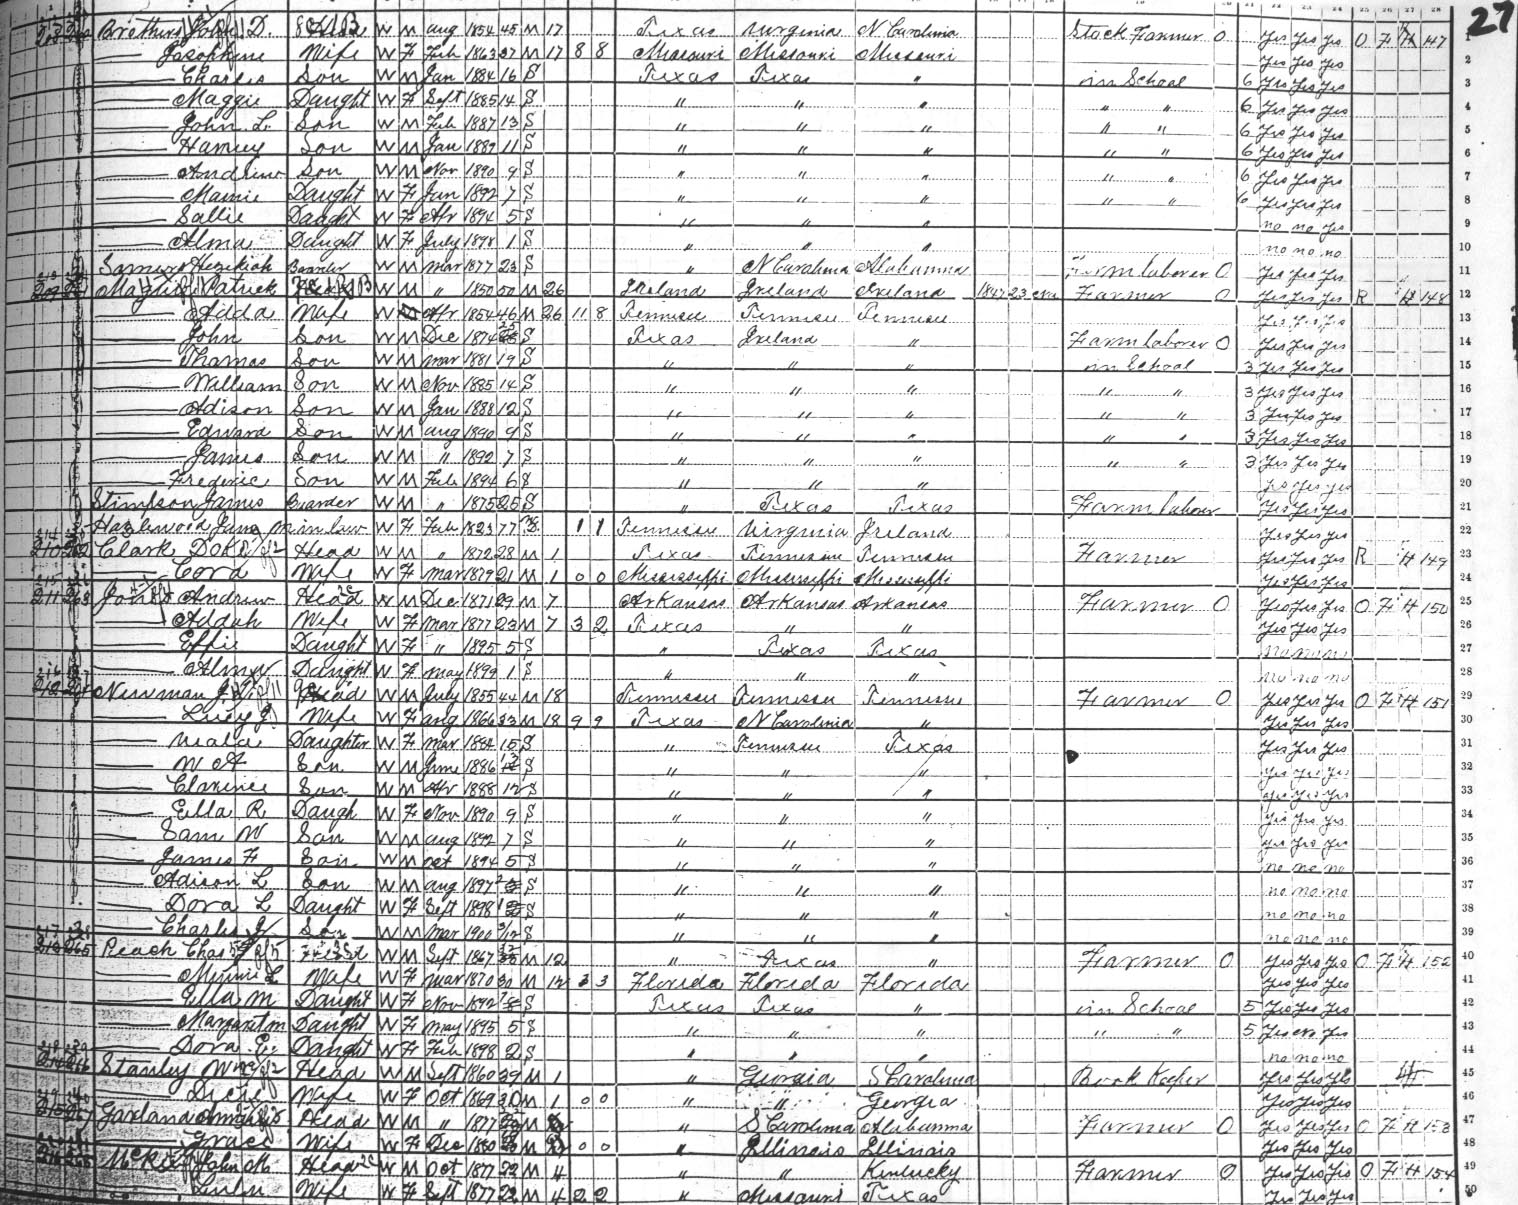 27
Brothers Joseph D. W M Aug 1854 45 M 17 Texas Virginia N Carolina Stock Farmer 0 Yes Yes Yes O F 147 1
Josephine Wife W F Feb 1863 37 M 17 8 8 Missouri Missouri Missouri Yes Yes Yes 2
Charles Son W M Jan 1884 16 S Texas Texas " in School 6 Yes Yes Yes 3
Maggie Daught W F Sept 1885 14 S " " " " " 6 Yes Yes Yes 4
John L. Son W M Feb 1887 13 S " " " " " 6 Yes Yes Yes 5
Harvey Son W M Jan 1889 11 S " " " " " 6 Yes Yes Yes 6
Andrew Son W M Nov 1890 9 S " " " " " 6 Yes Yes Yes 7
Mamie Daught W F Jun 1892 7 S " " " " " 6 Yes Yes Yes 8
Sallie Daught W F Apr 1894 5 S " " " no no yes 9
Alma Daught W F July 1898 1 S " " " no no no 10
Hezekiah Boarder W M Mar 1877 23 S " N Carolina Alabamma Farm laborer 0 Yes Yes Yes 11
Patrick W M " 1850 50 M 26 Ireland Ireland Ireland 1847 23 Farmer 0 Yes Yes Yes R H 148 12
Adda Wife W Apr 1854 46 M 26 11 8 Tennisee Tennisee Tennisee Yes Yes Yes 13
John Son W M Dec 1874 25 S Texas Ireland " Farm laborer 0 Yes Yes Yes 14
Thomas Son W M Mar 1881 19 S " " " in School 3 Yes Yes Yes 15
William Son W M Nov 1885 14 S " " " " " 3 Yes Yes Yes 16
Adison Son W M Jan 1888 12 S " " " " " 3 Yes Yes Yes 17
Edward Son W M Aug 1890 9 S " " " " " 3 Yes Yes Yes 18
James Son W M " 1892 7 S " " " " " 3 Yes Yes Yes 19
Frederic Son W M Feb 1894 6 S " " " yes yes yes 20
Stimpson James Boarder W M " 1875 25 S " Texas Texas Farm labour Yes Yes Yes 21
Hazlewood Jane M in law W F Feb 1823 77 1 1 Tennisee Virginia Ireland Yes Yes Yes 22
Clark Head W M " 1872 28 M 1 Texas Tennisee Tennisee Farmer Yes Yes Yes R H 149 23
Cora Wife W F Mar 1879 21 M 1 0 0 Mississippi Mississippi Mississippi Yes Yes Yes 24
Jones Andrew Head W M Dec 1871 29 M 7 Arkansas Arkansas Arkansas Farmer 0 Yes Yes Yes O F H 150 25
Addah Wife W F Mar 1877 23 M 7 3 2 Texas " " Yes Yes Yes 26
Effie Daught W F " 1895 5 S " Texas Texas no no no 27
Daught W F May 1899 1 S " " " no no no 28
Newman Head W M July 1855 44 M 18 Tennisee Tennisee Tennisee Farmer 0 Yes Yes Yes O F H 151 29
Lucy J Wife W F Aug 1866 33 M 18 9 9 Texas N Carolinia " Yes Yes Yes 30
Daughter W F Mar 1884 15 S " Tennisee Texas Yes Yes Yes 31
W A Son W M June 1886 13 S " " " Yes Yes Yes 32
Clarence Son W M Apr 1888 12 S " " " yes Yes Yes 33
Ella R Daugh W F Nov 1890 9 S " " " Yes Yes Yes 34
Sam W Son W M Aug 1892 7 S " " " Yes Yes Yes 35
James F Son W M Oct 1894 5 S " " " no no no 36
Adison L Son W M Aug 1897 2 S " " " no no no 37
Dora L Daught W F Sept 1898 1 S " " " no no no 38
Charles J Son W M Mar 1900 3/12 S " " " no no no 39
Peach Chas Head W M Sept 1867 32 M 12 " Texas " Farmer 0 Yes Yes Yes O F H 152 40
Minnie L Wife W F Mar 1870 30 M 12 3 3 Florida Florida Florida Yes Yes Yes 41
Ella M Daught W F Nov S Texas Texas " in School 5 Yes Yes Yes 42
Margaret M Daught W F May 1895 5 S " " " " " 5 Yes Yes 43
Dora E. Daught W F Feb 1898 2 S " " " no no no 44
Stanley Head W M Sept 1860 39 M 1 " Georgia S Carolina Book Keeper Yes Yes Yes H 45
Wife W F Oct 1869 30 M 1 0 0 " " Georgia Yes Yes Yes 46
Garland Head W M " 1877 M " S Carolinia Alabamma Farmer 0 Yes Yes Yes O F H 153 47
Grace Wife W F Dec 1880 M 0 0 " Illinois Illinois Yes Yes Yes 48
John M. Head W M Oct 1877 22 M 4 " " Kintucky Farmer 0 Yes Yes Yes O F H 154 49
Lulu Wife W F Sept 1877 22 M 4 2 2 " Missouri Texas Yes Yes Yes 50